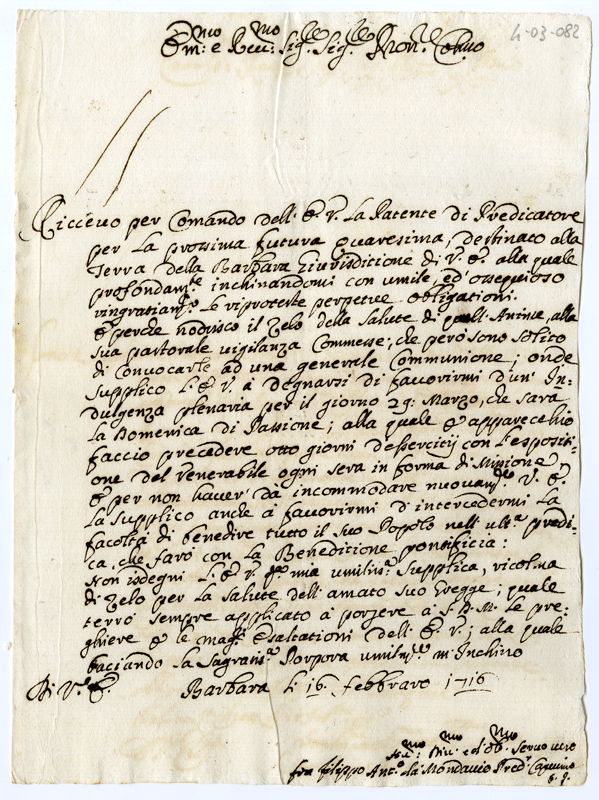 4-03-082
Em:mo e Rev:mo Sig:re Sig:re Pron:e Col:mo
Riccevo per Comando dell' E. V. La Patente di Predicatore
per La prossima futura Quaresima, destinato alla
Terra della Barbara Giurisditione di V. E. alla quale
profondam:te inchinandomi con umile, ed' ossequioso
ringratiam:to Le riprotesto perpetue obligationi.
E perche nodrisco il Zelo della Salute di quell' Anime, alla
sua pastorale vigilanza Commesse, che però sono solito
di Convocarle ad una generale Communione; onde
Supplico L' E. V. à degnarsi di favorirmi d'un' In=
dulgenza plenaria per il giorno 29: Marzo, che sarà
La Domenica di Passione; alla quale E apparecchio
faccio precedere otto giorni d'essercitij con L'espositi=
one del Venerabile ogni sera in forma di Missione
E per non haver' dà incommodare nuovam:te V. E.
La Supplico anche à favorirmi d'intercedermi La
facoltà di benedire tutto il suo Popolo nell' ult:a predi=
ca, che farò con La Beneditione pontificia:
Non isdegni L' E. V. q:ta mia umiliss:a Supplica, ricolma
di Zelo per La salute dell' amato suo Gregge; quale
terrò sempre applicato à porgere à S. D. M. Le pre=
ghiere E le mag:ri Esaltationi dell' E. V.; alla quale
baciando la Sagratiss:a Porpora umilm:te m'Inchino
Di V:ra E. Barbara Li 16. Febbraro 1716
Um:mo Div:mo ed Ob:mo Servo vero
fra Filippo Ant:o da Mondavio Pred:re Capucino